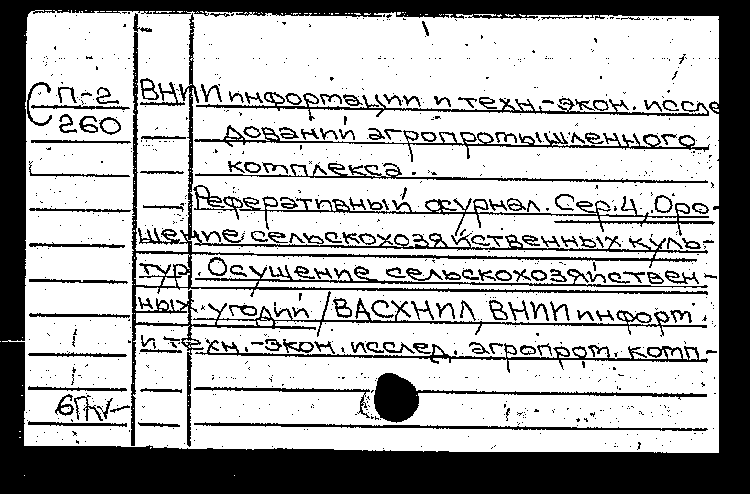 С П-2
260
ВНИИ информации и техн.-экон. иссле
дований агропромышленного
комплекса.
Реферативный журнал. Сер.4, Оро-
шение сельскохозяйственных куль-
тур. Осушение сельскохозяйствен-
ных угодий / ВАСХНИЛ, ВНИИ информ.
и техн.-экон. исслед. агропром. комп-